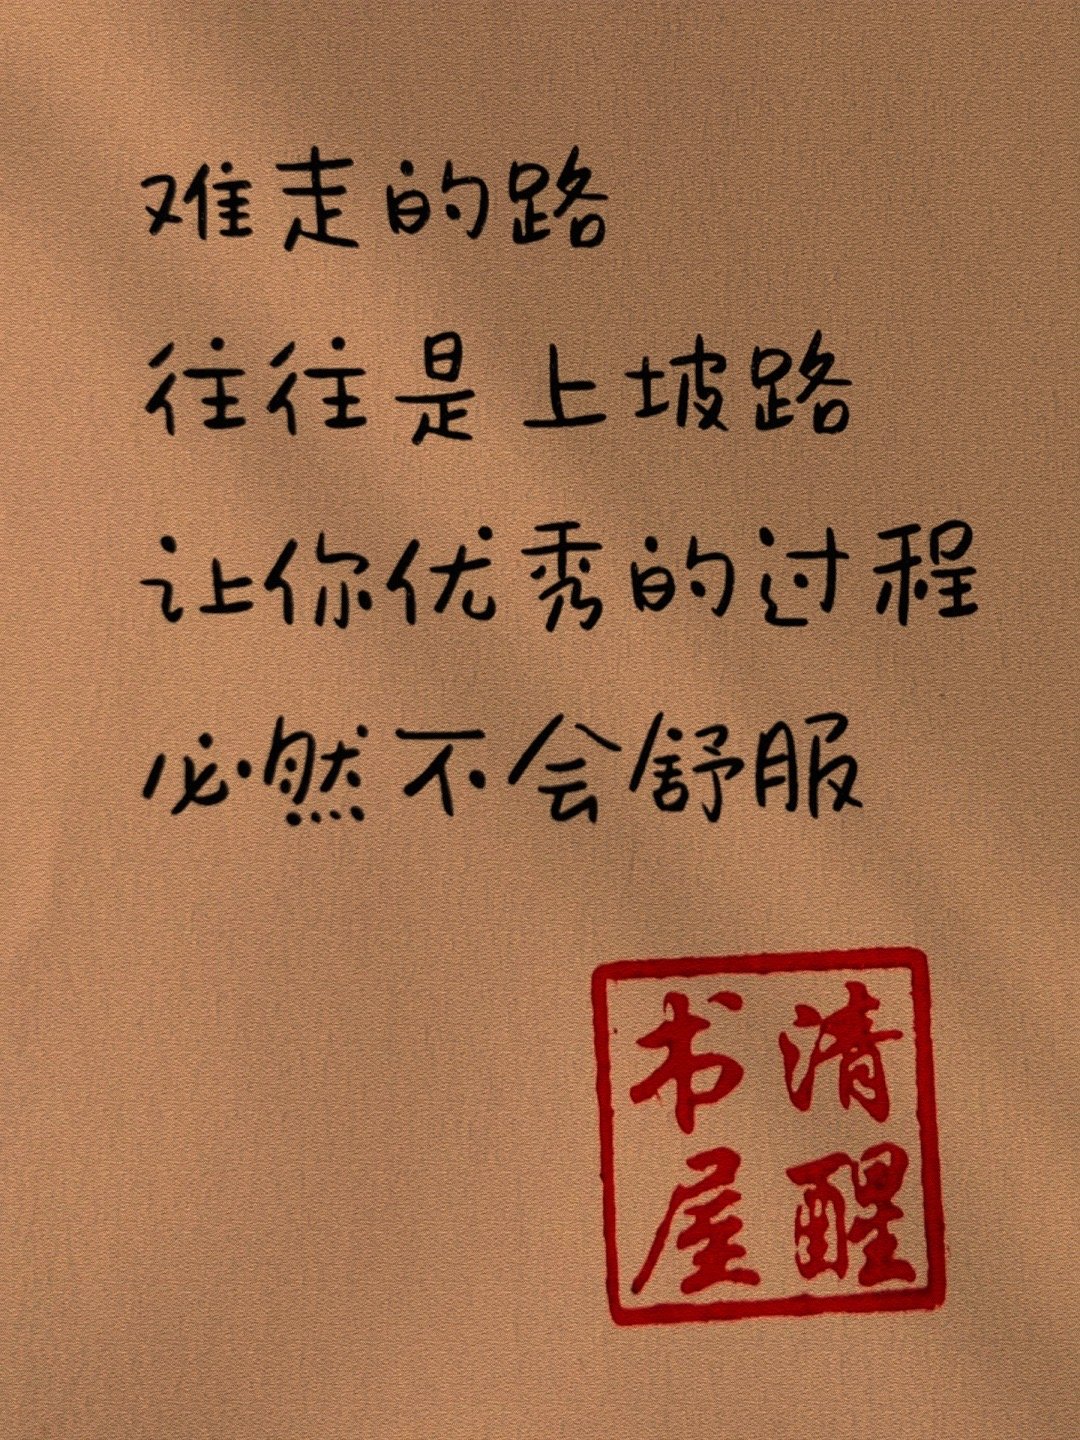 难走的路
往往是上坡路
让你优秀的过程
必然不会舒服
清醒
书屋